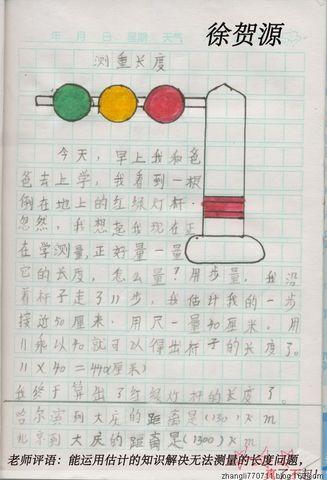 徐贺源
年 月 日 星期 天气
测量长度
今天，早上我和爸
爸去上学，我看到一根
倒在地上的红绿灯杆。
忽然，我想起我现在正
在学测量，正好量一量
它的长度，怎么量？用步量，我沿
着杆子走了11步，我估计我的一步
接近50厘米。用尺一量40厘米。用
11乘以40就可以得出杆子的长度了。
11×40=440(厘米)
我终于算出了红绿灯杆的长度了。
哈尔滨到大庆的距离是(130)Km
北京到大庆的距离是(1300)Km
老师评语：能运用估计的知识解决无法测量的长度问题，
zhangli770717.blog.163.com